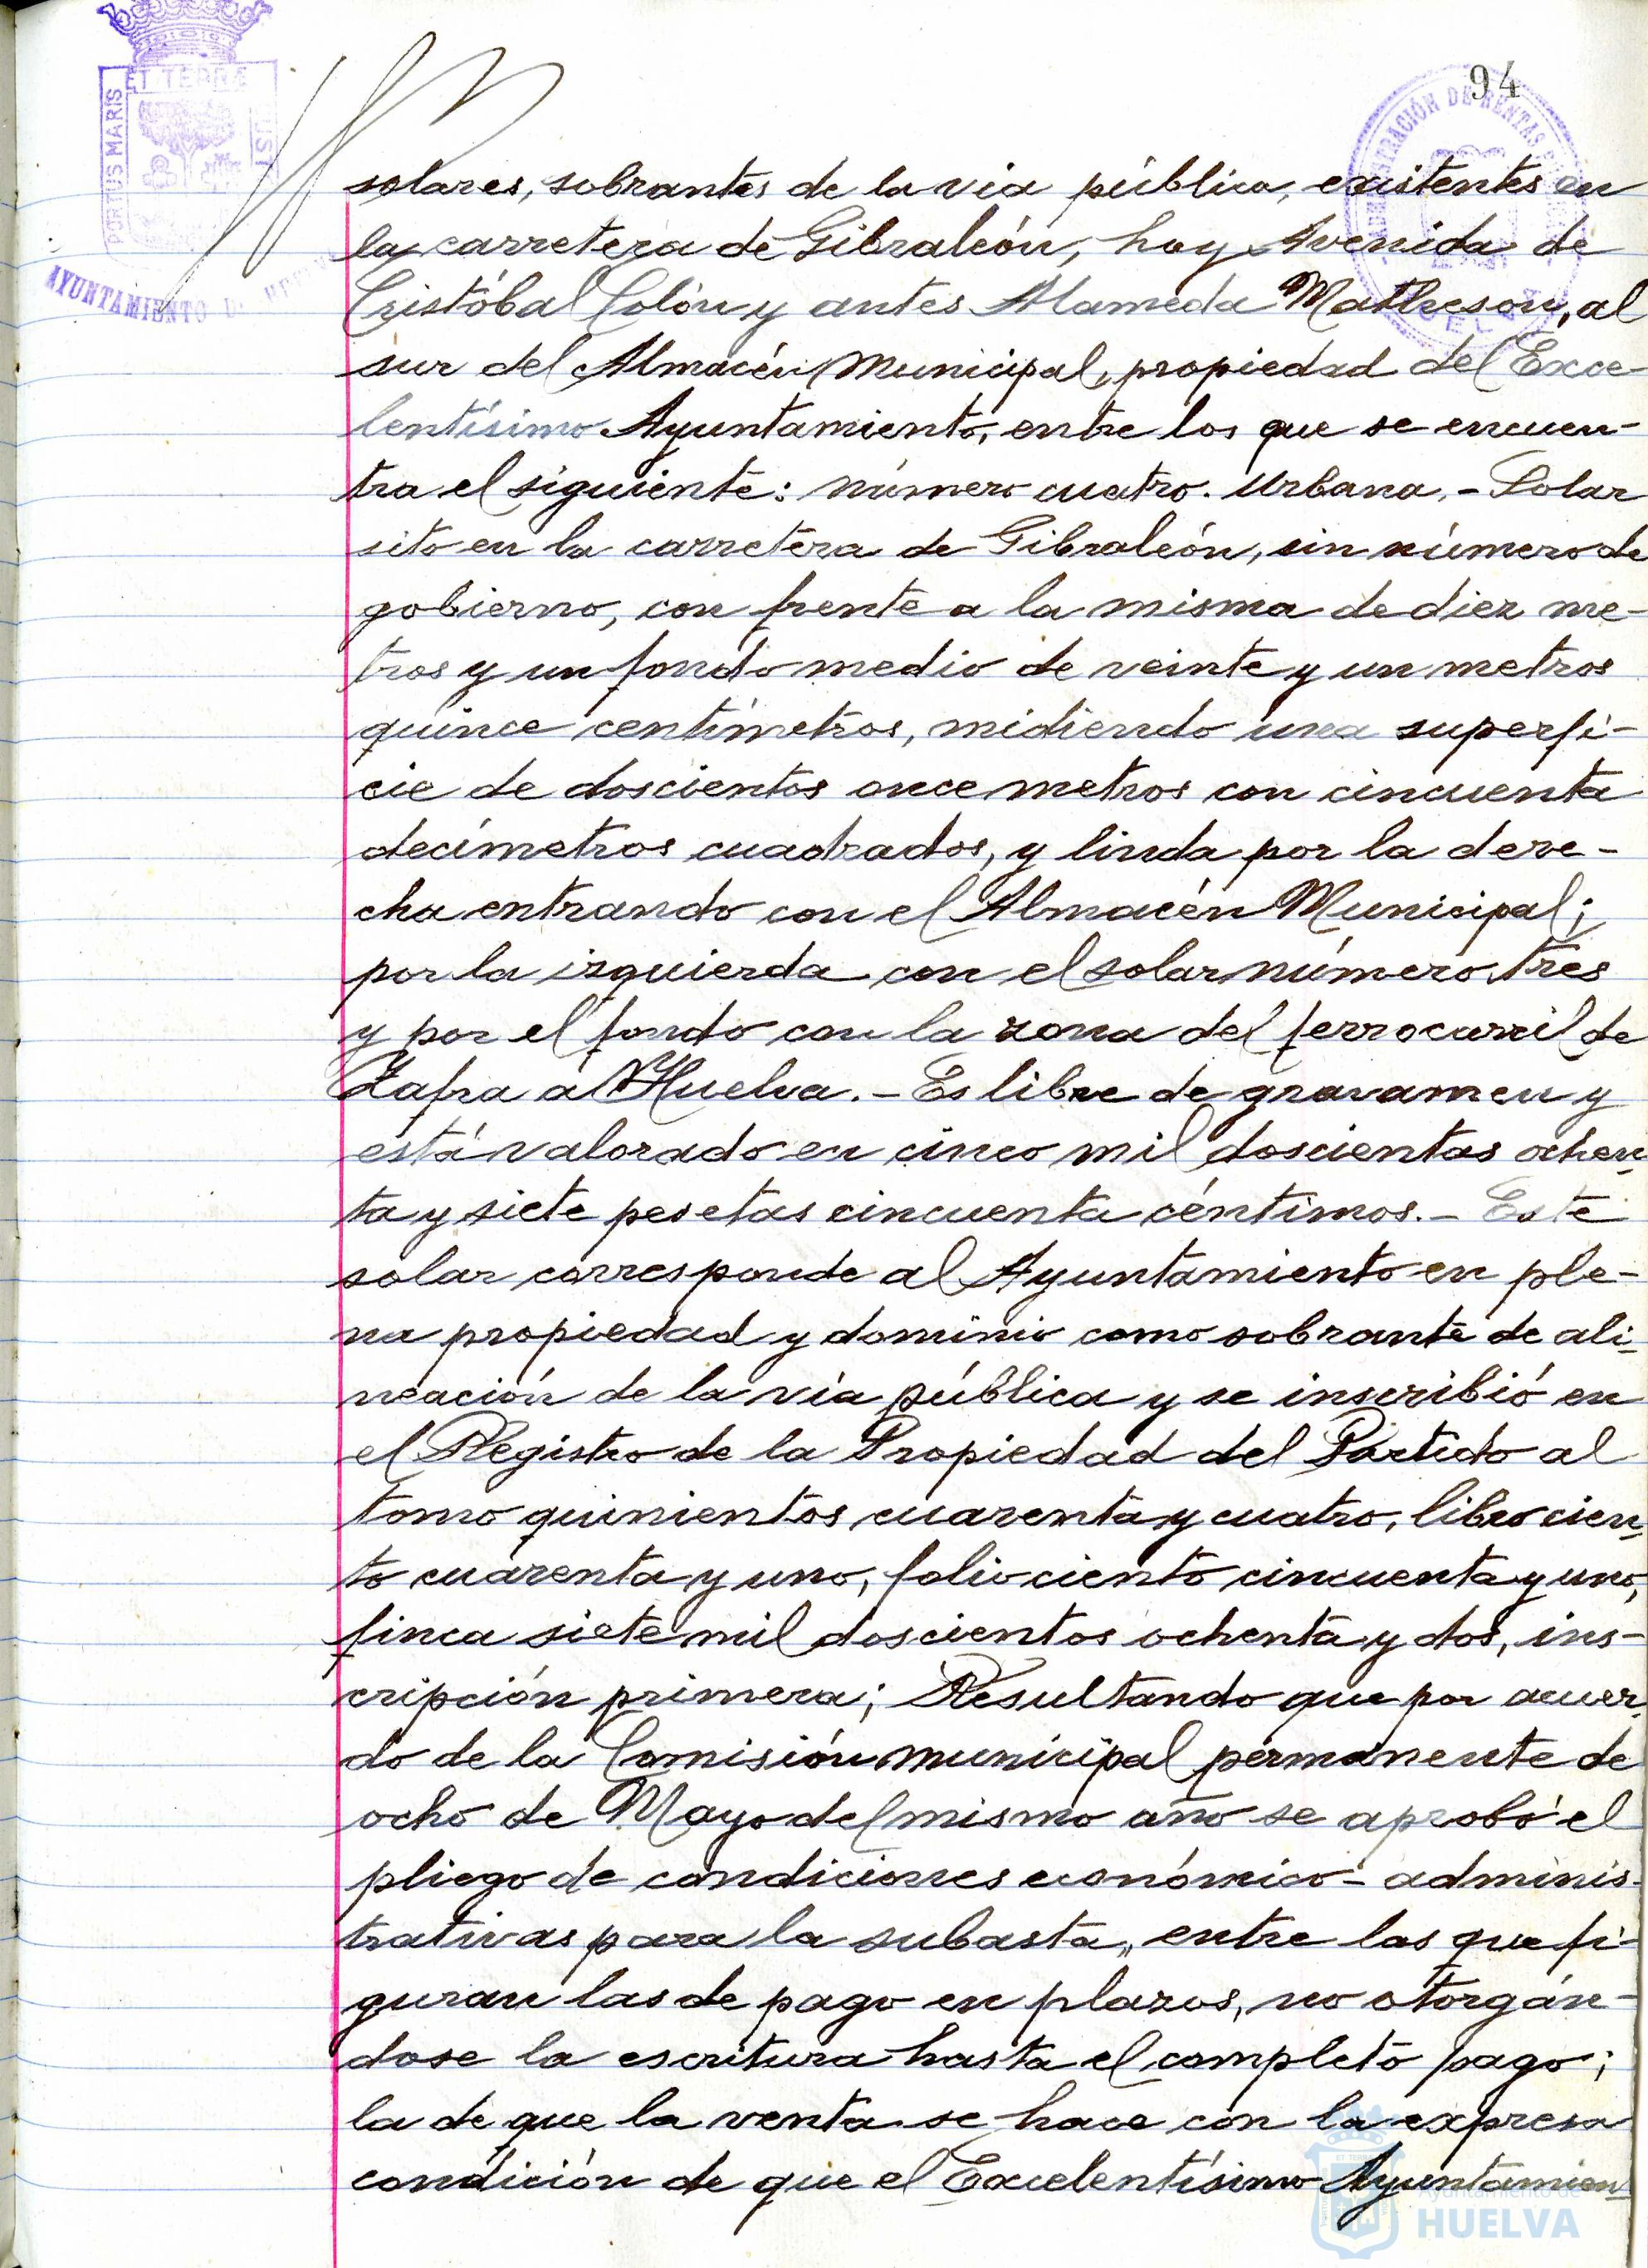 94
ET TERRÆ
PORTUS MARIS
AYUNTAMIENTO DE
ADMINISTRACIÓN DE RENTAS
solares, sobrantes de la via pública, existentes en
la carretera de Gibraleón, hoy Avenida de
Cristóbal Colón y antes Alameda Matheson, al
sur del Almacén Municipal, propiedad del Exce-
lentísimo Ayuntamiento, entre los que se encuen-
tra el siguiente: número cuatro. Urbana.- Solar
sito en la carretera de Gibraleón, sin número de
gobierno, con frente a la misma de diez me-
tros y un fondo medio de veinte y un metros
quince centímetros, midiendo una superfi-
cie de doscientos once metros con cincuenta
decímetros cuadrados, y linda por la dere-
cha entrando con el Almacén Municipal;
por la izquierda con el solar número tres
y por el fondo con la zona del ferrocarril de
Zafra á Huelva.- Es libre de gravamen y
está valorado en cinco mil doscientas ochen-
ta y siete pesetas cincuenta céntimos.- Este
solar corresponde al Ayuntamiento en ple-
na propiedad y dominio como sobrante de ali-
neación de la vía pública y se inscribió en
el Registro de la Propiedad del Partido al
tomo quinientos cuarenta y cuatro, libro cien-
to cuarenta y uno, folio ciento cincuenta y uno,
finca siete mil doscientos ochenta y dos, ins-
cripción primera; Resultando que por acuer-
do de la Comisión municipal permanente de
ocho de Mayo del mismo año se aprobó el
pliego de condiciones económico-adminis-
trativas para la subasta, entre las que fi-
guran las de pago en plazos, no otorgán-
dose la escritura hasta el completo pago;
la de que la venta se hace con la expresa
condición de que el Excelentísimo Ayuntamien-
Ayuntamiento de
HUELVA